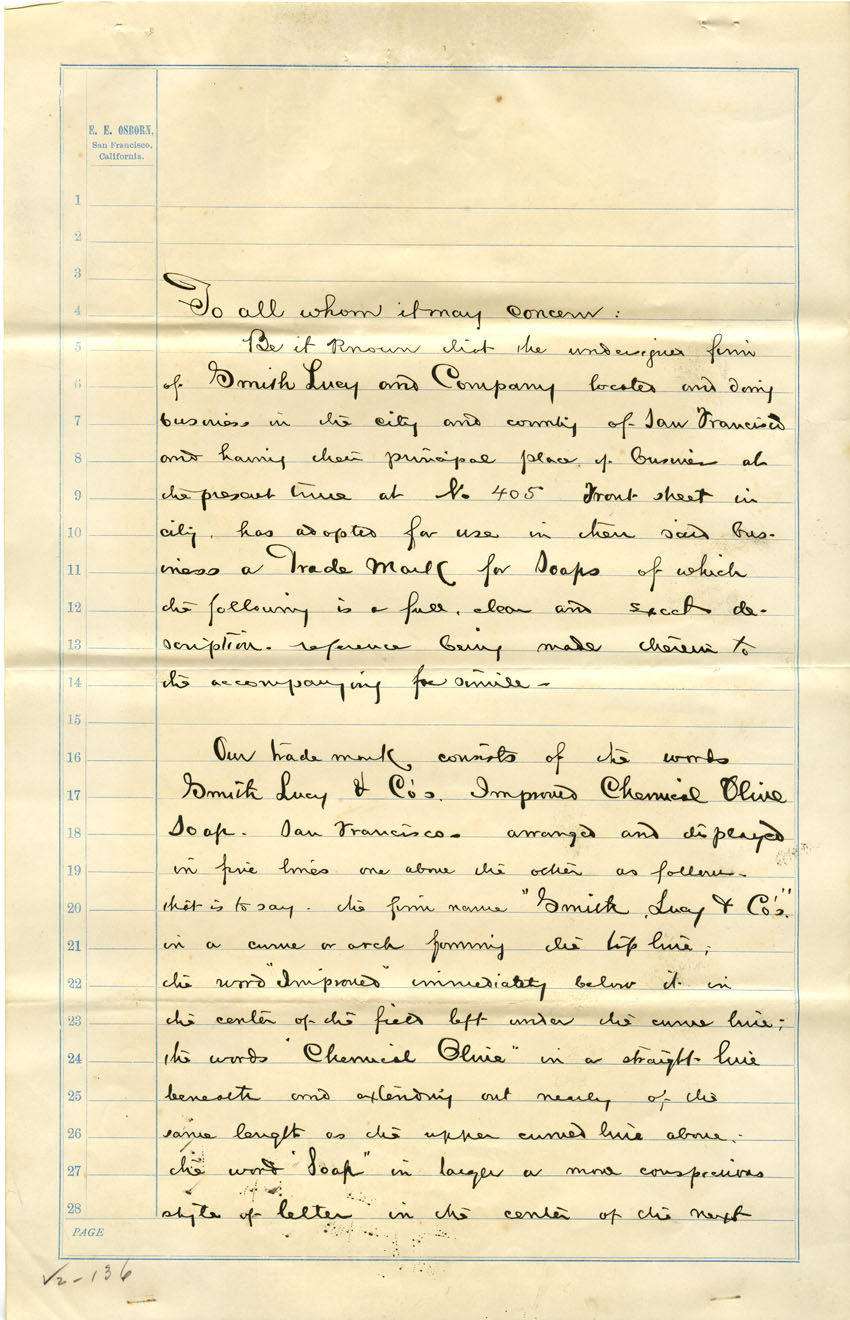 E. E. OSBORN,
San Francisco,
California.
1
2
3
4 To all whom it may concern :
5 Be it Known that the undersigned firm
6 of Smith Lucy and Company located and doing
7 business in the city and county of San Francisco
8 and having their principal place of business at
9 the present time at No 405 Front street in
10 city, has adopted for use in their said bus-
11 iness a Trade Mark for Soaps of which
12 the following is a full, clear and exact de-
13 scription. reference being made therein to
14 the accompanying fac simile -
15
16 Our trade mark consists of the words
17 Smith Lucy & Co's. Improved Chemical Olive
18 Soap. San Francisco. arranged and displayed
19 in five lines one above the other as follows.
20 that is to say. the firm name "Smith, Lucy & Co's."
21 in a curve or arch forming the top line ;
22 the word "Improved" immediately below it in
23 the center of the field left under the curve line ;
24 the words "Chemical Olive" in a straight line
25 beneath and extending out nearly of the
26 same length as the upper curved line above ;
27 the word "Soap" in larger or more conspicuous
28 style of letter in the center of the next
PAGE
V2-136